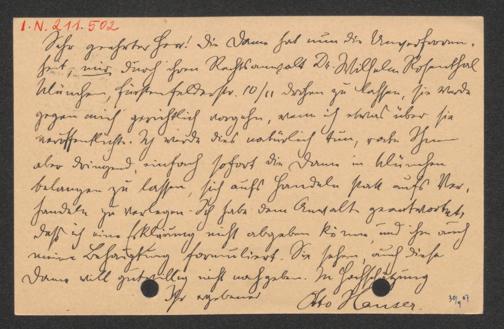 I.N. 211.502
Sehr geehrter Herr! Die Dame hat nun die Unverfroren-
heit, mir durch ihren Rechtsanwalt Dr. Wilhelm Rosenthal
München, Fürstenfelderstr. 10/II drohen zu lassen, sie werde
gegen mich gerichtlich vorgehn, wenn ich etwas über sie
veröffentliche. Ich werde dies natürlich tun, rate Ihnen
aber dringend, einfach sofort die Dame in München
belangen zu lassen, sich aufs Handeln statt aufs Ver-
handeln zu verlegen. Ich habe dem Anwalt geantwortet,
daß ich eine Erklärung nicht abgeben könne, und ihm auch
meine Behauptung formuliert. Sie sehen, auch diese
Dame will gutwillig nicht nachgeben. In Hochschätzung
Ihr ergebener Otto Hauser.